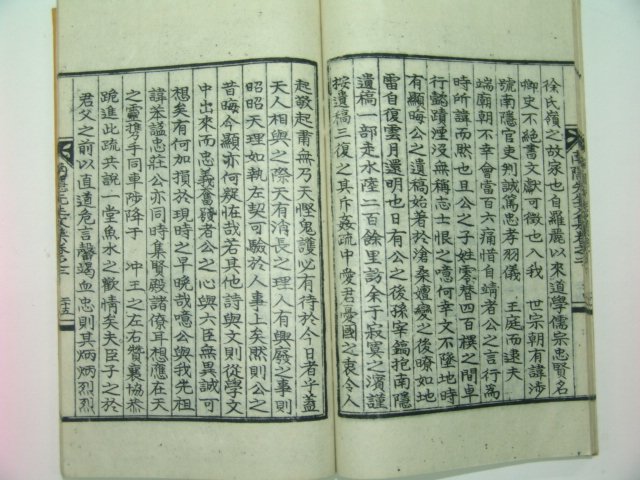 徐氏嶺之故家也自羅麗以來道學儒宗忠賢名
卿史不絶書文獻可徵也入我 世宗朝有諱涉
號南隱官吏判誠篤忠孝羽儀 王庭而逮夫
端廟朝不幸會當百六痛惜自靖者公之言行爲
時所諱而黙也且公之子姓零替四百禩之間卓
行懿蹟湮没無稱志士恨之噫何幸文不墜地時
有顯晦公之遺稿始著於滄桑嬗變之後瞭如地
雷自復雲月還明也日有公之後孫宇鎬抱南隱
遺稿一部走水陸二百餘里訪余于寂寞之濱謹
按遺稿三復之其斥姦疏中愛君憂國之衷令人
起敬起肅無乃天慳鬼護必有待於今日者乎蓋
天人相與之際天有消長之理人有興廢之事則
昭昭天理如執左契可驗於人事上矣然則公之
昔晦今顯亦何疑哉若其他詩與文則從學文
中出來而忠義奮發者公之心與六臣無異誠可
想矣有何加損於現時之早晩哉噫公與我先祖
諱苯諡忠莊公亦同時集賢殿諸僚耳想應在天
之靈携手同車陟降于 冲王之左右贊襄協恭
跪進此疏共說一堂魚水之歡情矣夫臣子之於
君父之前以直道危言罄竭血忠則其炳炳烈烈